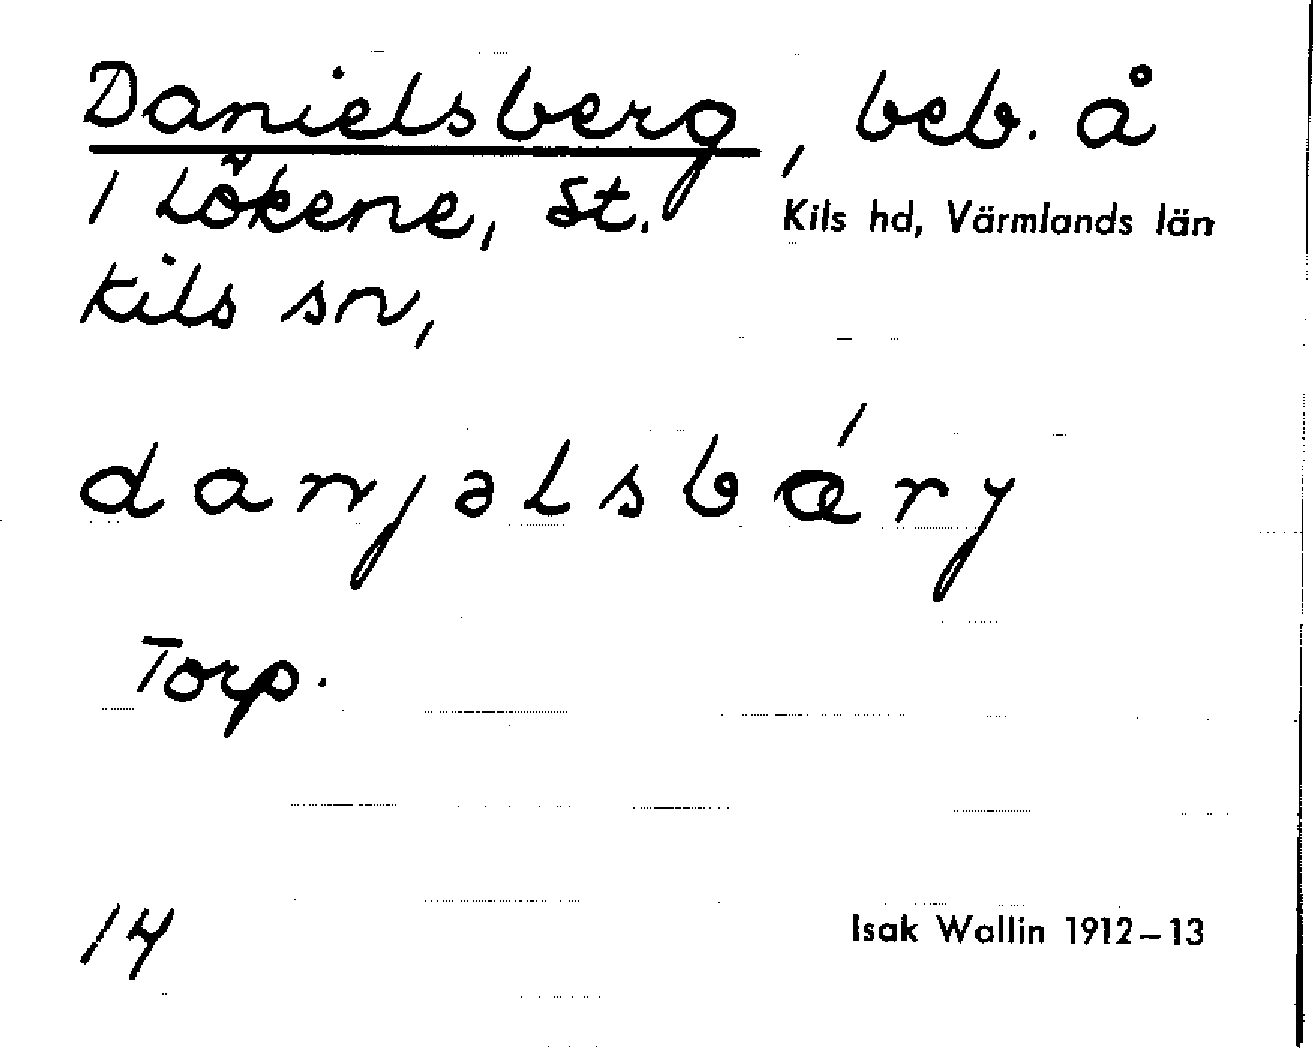 Danielsberg, beb. å
1 Lökene, St. Kils hd, Värmlands län
Kils sn,
danjəlsbǽrj
Torp.
14
Isak Wallin 1912–13